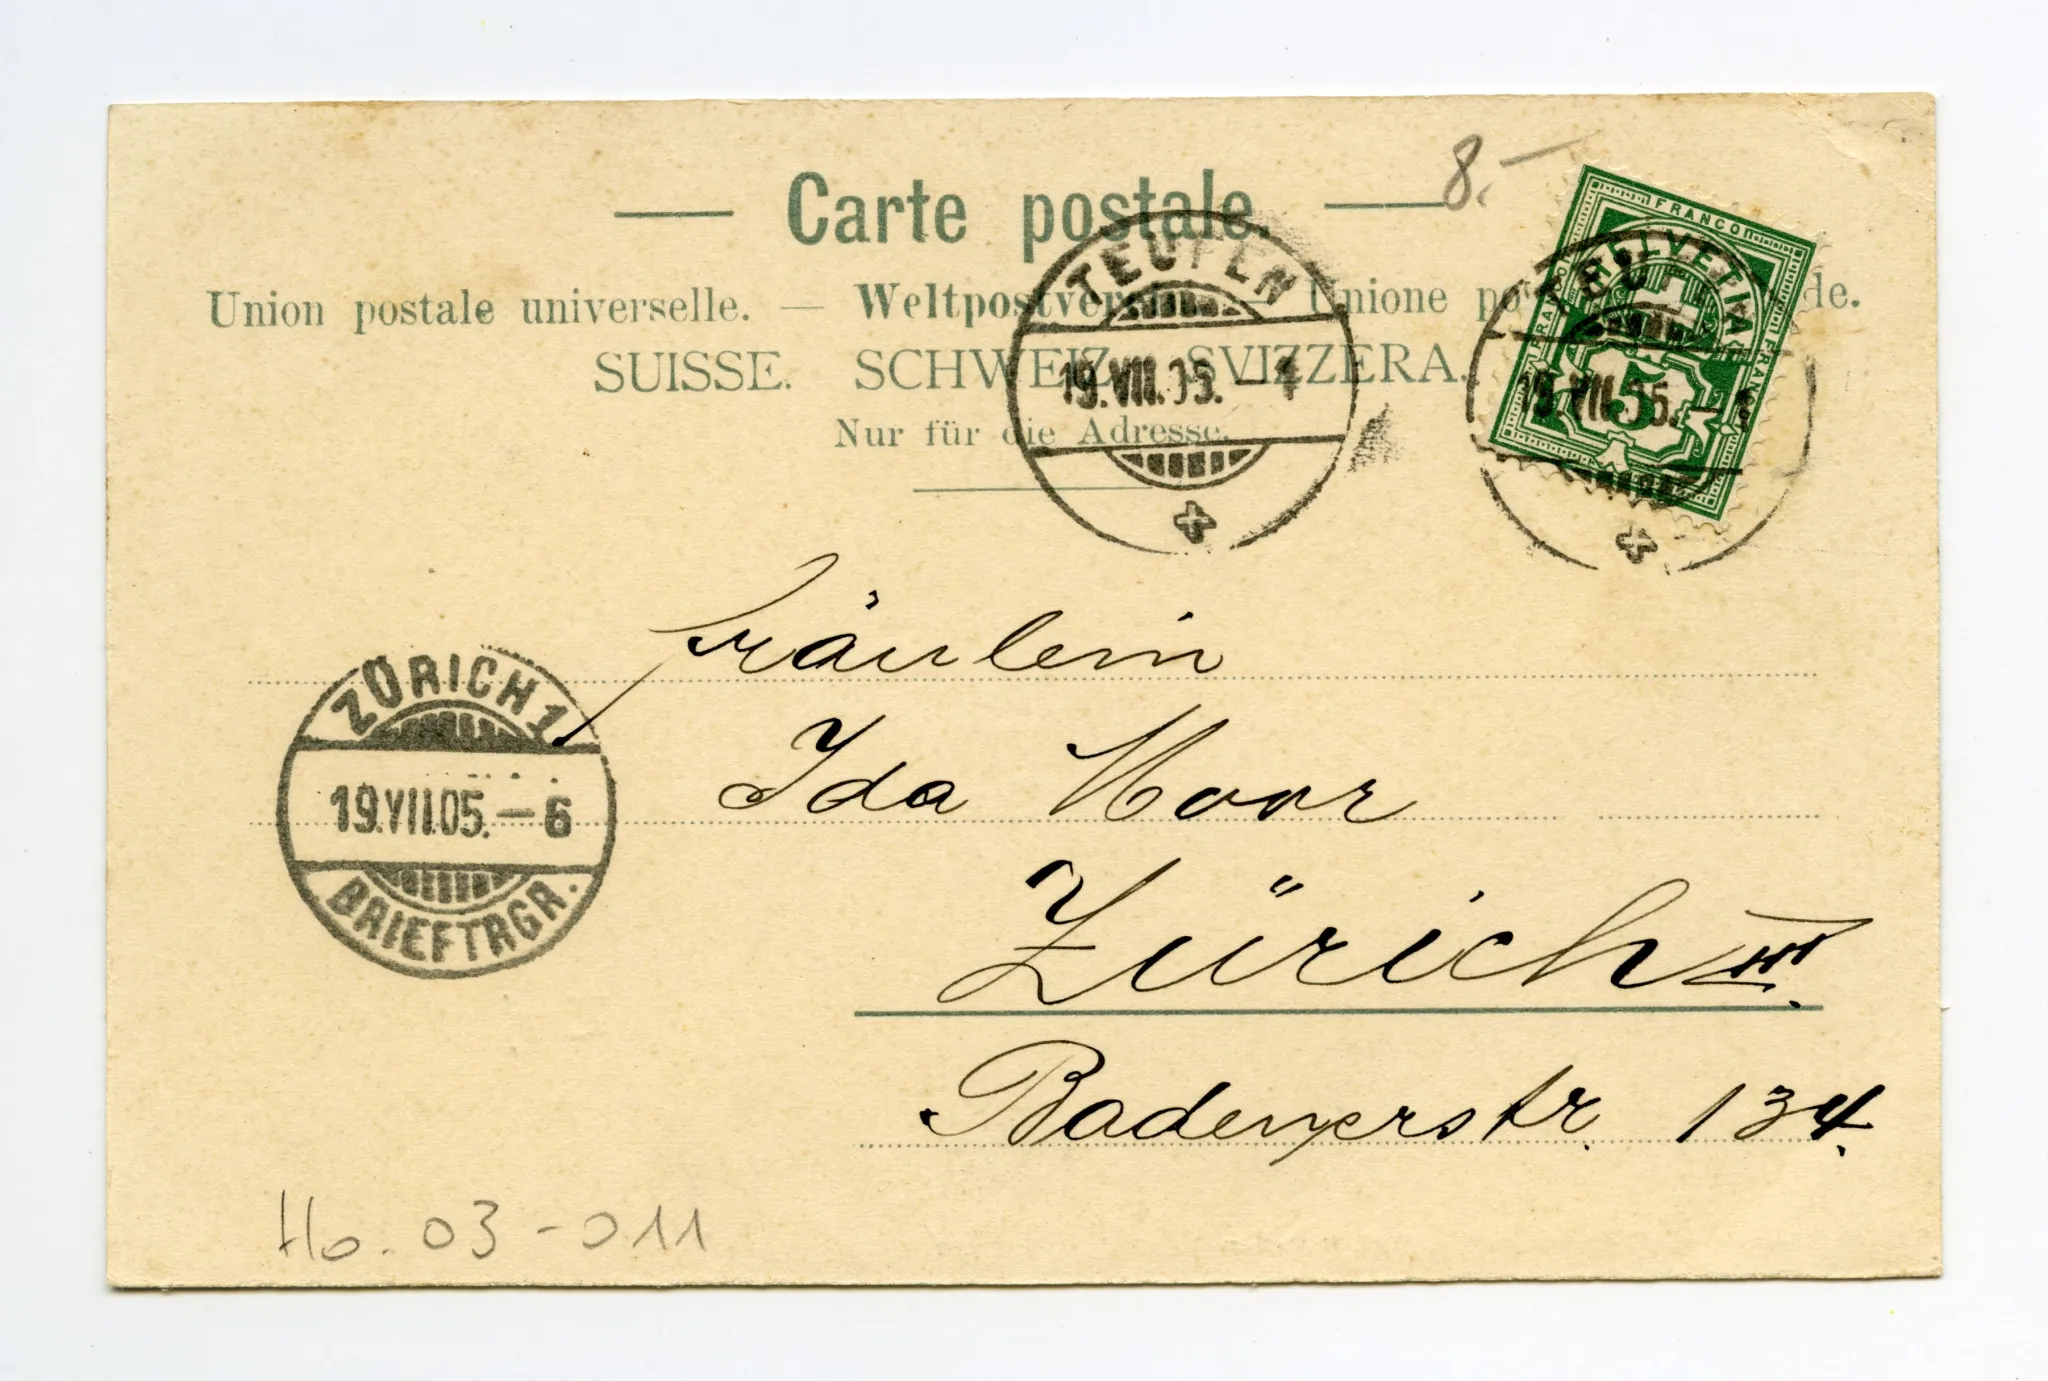 Carte postale.
8.–
Union postale universelle. — Weltpostverein — Unione po de.
SUISSE. SCHWEIZ. SVIZZERA.
Nur für die Adresse.
TEUFEN
19.VII.05.–1
FRANCO
HELVETIA
FRANCO
FRANCO
5
ZÜRICH 1
19.VII.05.–6
BRIEFTRGR.
Fräulein
Ida Moor
Zürich III.
Badenerstr. 134.
Ho. 03-011